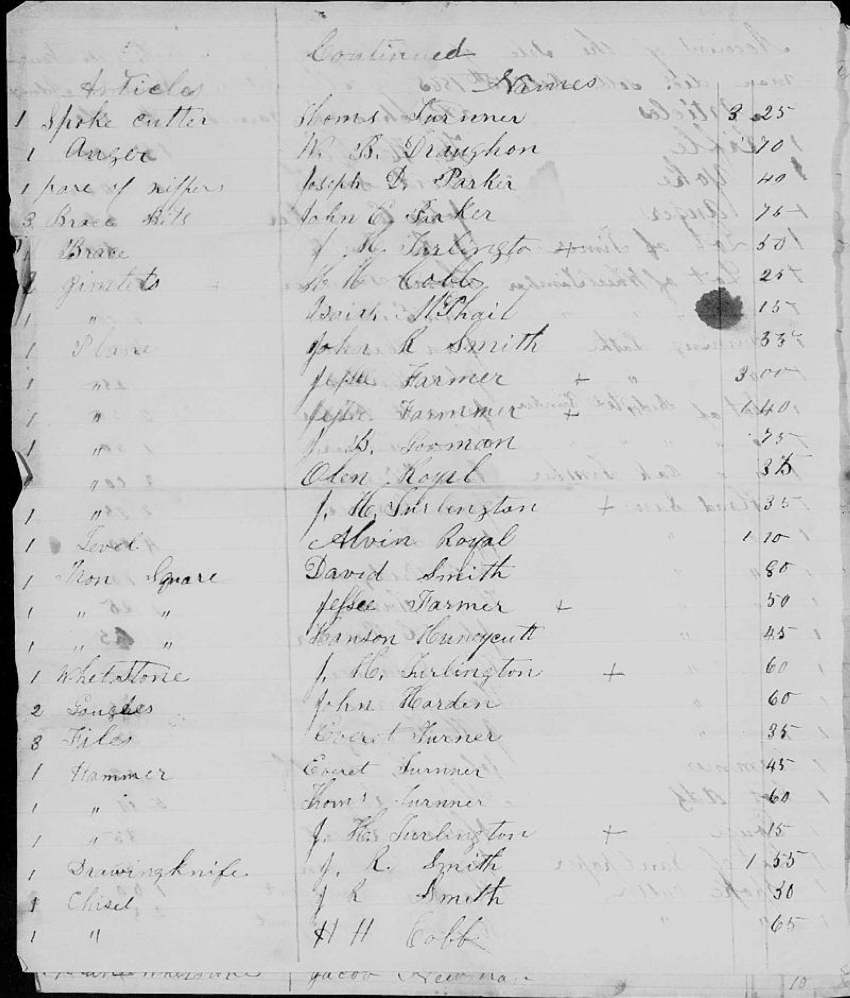 Continued
Articles Names
1 Spoke cutter Thoms Turnner 3 25
1 Auger W. B. Draughon 70
1 pare of nippers Joseph D Parker 40
3 Brace Bits John C Parker 75
1 Brace J. H. Turlington + 50
2 gimlets H H Cobb 25
1 " Isaiah McPhail 15
1 Plane John R Smith 35
1 " Jesse Farmer + 3 00
1 " Jesse Farmmer + 1 40
1 " J. B. 75
1 " Olen Royal 35
1 " J. H. Turlington + 35
1 Level Alvin Royal 1 10
1 Iron Square David Smith 80
1 " " Jessee Farmer + 50
1 " " Hanson Huneycutt 45
1 Whet Stone J. H. Turlington + 60
2 Gouges John Harden 60
3 Files Everet Turner 35
1 Hammer Everet Turnner 45
1 " Thoms Turnner 60
1 " J. H. Turlington + 15
1 Drawingknife J. R. Smith 1 55
1 Chisel J R Smith 30
1 " H H Cobb 65
Jacob Newman 10